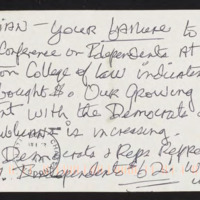 IAN – YOUR FAILURE TO
CONFERENCE ON INDEPENDENTS AT
ON COLLEGE OF LAW INDICATES
BOUGHT. OUR GROWING
NT WITH THE DEMOCRATS
PUBLICANS IS INCREASING.
DEMOCRATS & REPS REPRE
INDEPENDENTS 62